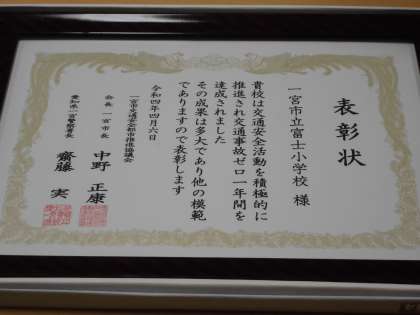 表彰状
一宮市立富士小学校 様
貴校は交通安全活動を積極的に
推進され交通事故ゼロ一年間を
達成されました
その成果は多大であり他の模範
でありますので表彰します
令和四年四月六日
一宮市交通安全都市推進協議会
会長 一宮市長 中野 正康
愛知県一宮警察署長 齋藤 実